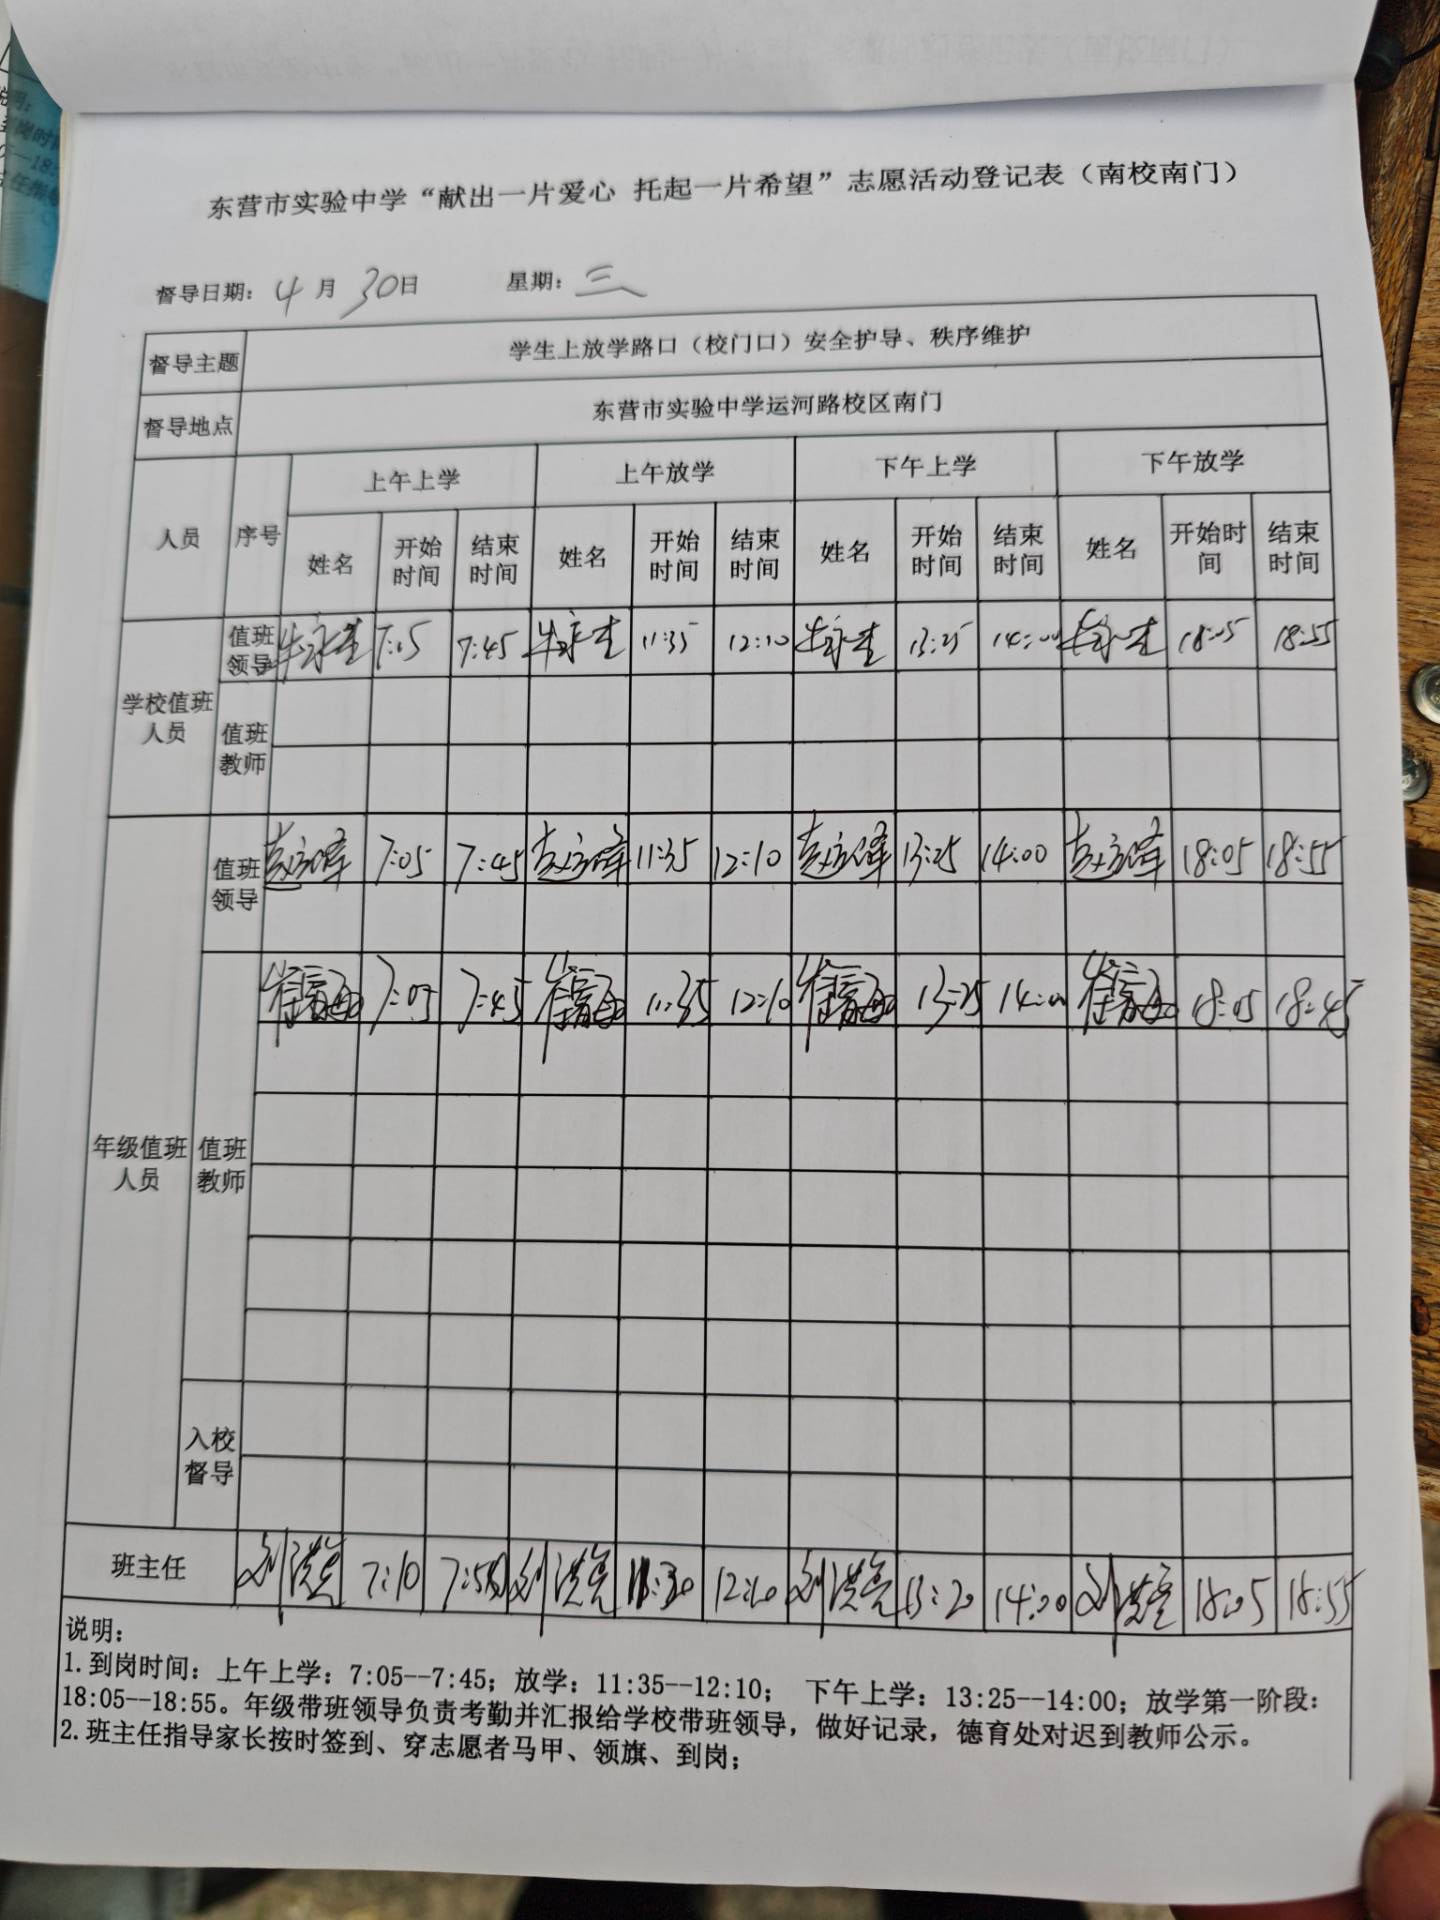 东营市实验中学“献出一片爱心 托起一片希望”志愿活动登记表（南校南门）
督导日期：4月30日 星期：三
督导主题 学生上放学路口（校门口）安全护导、秩序维护
督导地点 东营市实验中学运河路校区南门
人员 序号 上午上学 上午放学 下午上学 下午放学
姓名 开始时间 结束时间 姓名 开始时间 结束时间 姓名 开始时间 结束时间 姓名 开始时间 结束时间
学校值班人员 值班领导 7:05 7:45 11:35 12:10 13:25 14:00 18:05 18:55
值班教师
年级值班人员 值班领导 7:05 7:45 11:35 12:10 13:25 14:00 18:05 18:55
值班教师 7:05 7:45 11:35 12:10 13:25 14:00 18:05 18:45
入校督导
班主任 刘洪亮 7:10 刘洪亮 12:10 刘洪亮 13:20 14:00 刘洪亮 18:05 18:55
说明：
1.到岗时间：上午上学：7:05--7:45；放学：11:35--12:10； 下午上学：13:25--14:00；放学第一阶段：
18:05--18:55。年级带班领导负责考勤并汇报给学校带班领导，做好记录，德育处对迟到教师公示。
2.班主任指导家长按时签到、穿志愿者马甲、领旗、到岗；